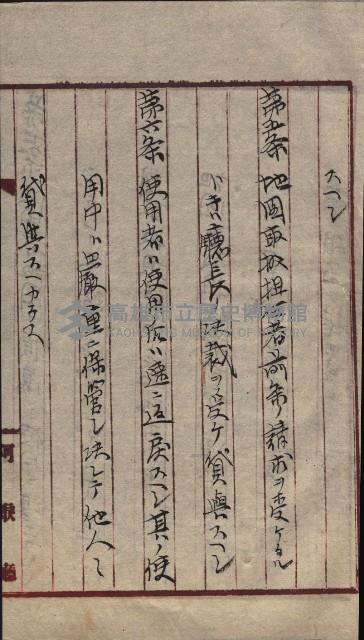 スヘシ
第五条 地図取扱担当者前条ノ請求ヲ受ケタル
トキハ廳長ノ決裁ヲ受ケ貸與スヘシ
第六条 使用者ハ使用后ハ速ニ返戻スヘシ其ノ使
用中ハ最厳重ニ保管シ決シテ他人ニ
貸與スヘカラス
高雄市立歷史博物館
KAOHSIUNG MUSEUM OF HISTORY